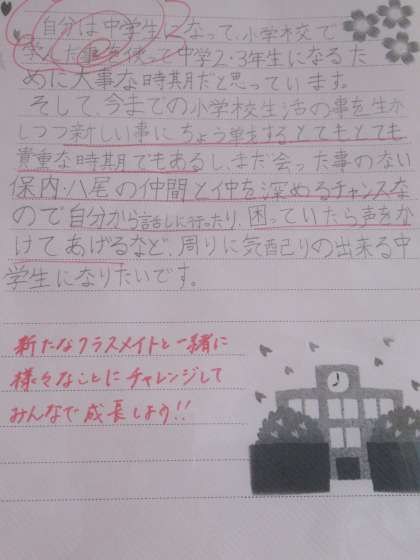 自分は中学生になって、小学校で
学んだ事を使って中学2・3年生になるた
めに大事な時期だと思っています。
そして、今までの小学校生活の事を生か
しつつ新しい事にちょう戦するとてもとても
貴重な時期でもあるし、まだ会った事のない
保内・八尾の仲間と仲を深めるチャンスな
ので自分から話しに行ったり、困っていたら声をか
けてあげるなど、周りに気配りの出来る中
学生になりたいです。
新たなクラスメイトと一緒に
様々なことにチャレンジして
みんなで成長しよう!!